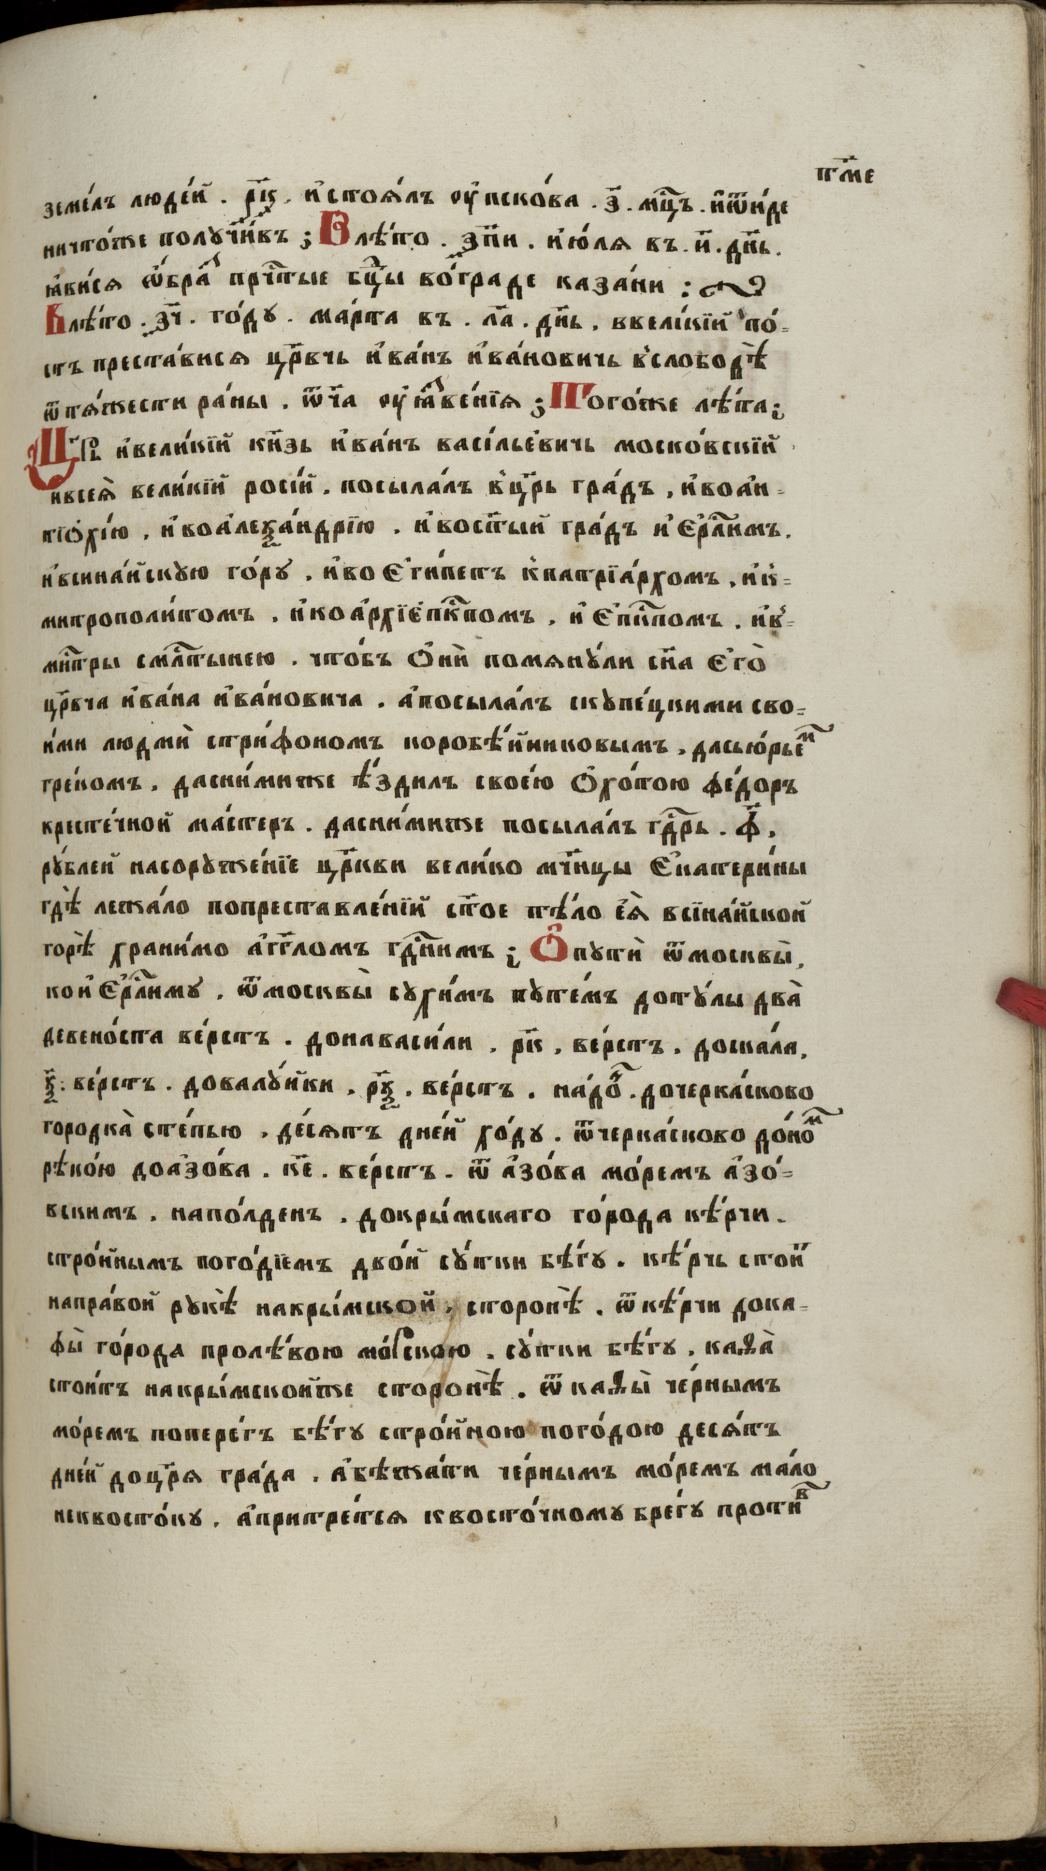 тм҃е
земе́лъ люде́й . р҃к . и҆стоѧ́лъ ѹ҆пско́ва . з҃ . мц҃ъ . и҆ѿи́де
ничто́же получи́въ ; Влѣ́то . зп҃и . и҆ю́лѧ въ . и҃ . дн҃ь .
ꙗ҆ви́сѧ ѡ҆́бра прⷭ҇тые бцⷣы во́граде каза́ни :
Влѣ́то . зч҃ . го́ду . ма́рта въ . ла҃ . дн҃ь . ввели́кїй по́=
стъ преста́висѧ црⷭ҇вчь и҆ва́нъ и҆ва́новичь в̾слободѣ̀
ѿтѧ́жести ра́ны . ѿча ѹ҆ꙗ҆ве́нїѧ ; Тогѡ́же лѣ́та ;
Цр҃ь и҆вели́кїй кн҃зь и҆ва́нъ васі́льевичь моско́вскїй
и҆всеѧ̀ вели́кїй росі́й . посыла́лъ в̾цр҃ь гра́дъ , и҆воа҆н=
тїѻ҆хі́ю , и҆воа҆леѯа́ндрїю . и҆востⷭ҇ый гра́дъ и҆ Є҆рⷭ҇лимъ .
и҆всина́йскую го́ру . и҆во Є҆ги́петъ к̾патрїа́рхомъ , и҆к=
митрополи́томъ . и҆коа҆рхїепⷭ҇кпомъ , и҆ Є҆пⷭ҇кпомъ . и҆в=
мⷭ҇нтри смⷭ҇лтынею . что́бъ Ѻ҆нѝ помѧну́ли сн҃а Є҆гѡ̀
црⷭ҇вча и҆ва́на и҆ва́новича . а҆посыла́лъ скупе́цкими сво=
и́ми людмѝ стри́фономъ коробѣ́йниковымъ , даcью́рьемъ
гре́комъ . дасни́миже ѣ҆́здилъ свое́ю Ѻ҆хо́тою фе́доръ
кресте́чной ма́стеръ . дасни́миже посыла́лъ гдⷭ҇рь . ф҃ ,
ру́блей насоруже́нїе црⷭ҇кви вели́ко мч҃ницы Є҆катери́ны
гдѣ̀ лежа́ло попреставле́нїй стⷭ҇ое тѣ́ло еѧ̀ всїна́йской
горѣ̀ храни́мо а҆гг҃ломъ гдⷭ҇нимъ ; Ѻ҆путѝ ѿмосквы̀ ,
кои҆ Є҆рⷭ҇лиму . ѿмосквы̀ сухи́мъ путе́мъ доту́лы два̀
девено́ста ве́рстъ . донаваси́ли , р҃к , ве́рстъ . доскала́ ,
ѯ҃ . ве́рстъ . довалу́йки . рѯ҃ . ве́рстъ . на́до . дочерка́сково
городка̀ сте́пью , де́сѧтъ дне́й хо́ду . ѿчерка́сково до́номъ
рѣко́ю доа҆зо́ва . к҃е . ве́рстъ . ѿ а҆зо́ва мо́ремъ а҆зо́=
вскимъ , напо́лденъ . докры́мскаго го́рода кѣ́рчи .
стро́йнымъ пого́дїемъ дво́й су́тки бѣ́гу . кѣ́рчь стои́т
напра́вой рукѣ̀ накры́мской , сторонѣ̀ . ѿкѣ́рчи дока=
фы̀ го́рода пролѣ́вою мо́рскою . су́тки бѣ́гу . каѳа̀
стои́тъ накры́мскойже сторонѣ̀ . ѿ каѳы̀ че́рнымъ
мо́ремъ попере́гъ бѣ́гу стро́йною пого́дою десѧ́тъ
дне́й доцр҃ѧ гра́да . а҆бѣжа́ти че́рнымъ мо́ремъ ма́ло
нквосто́ку . а҆притре́тсѧ квосто́чному бре́гу проти́въ